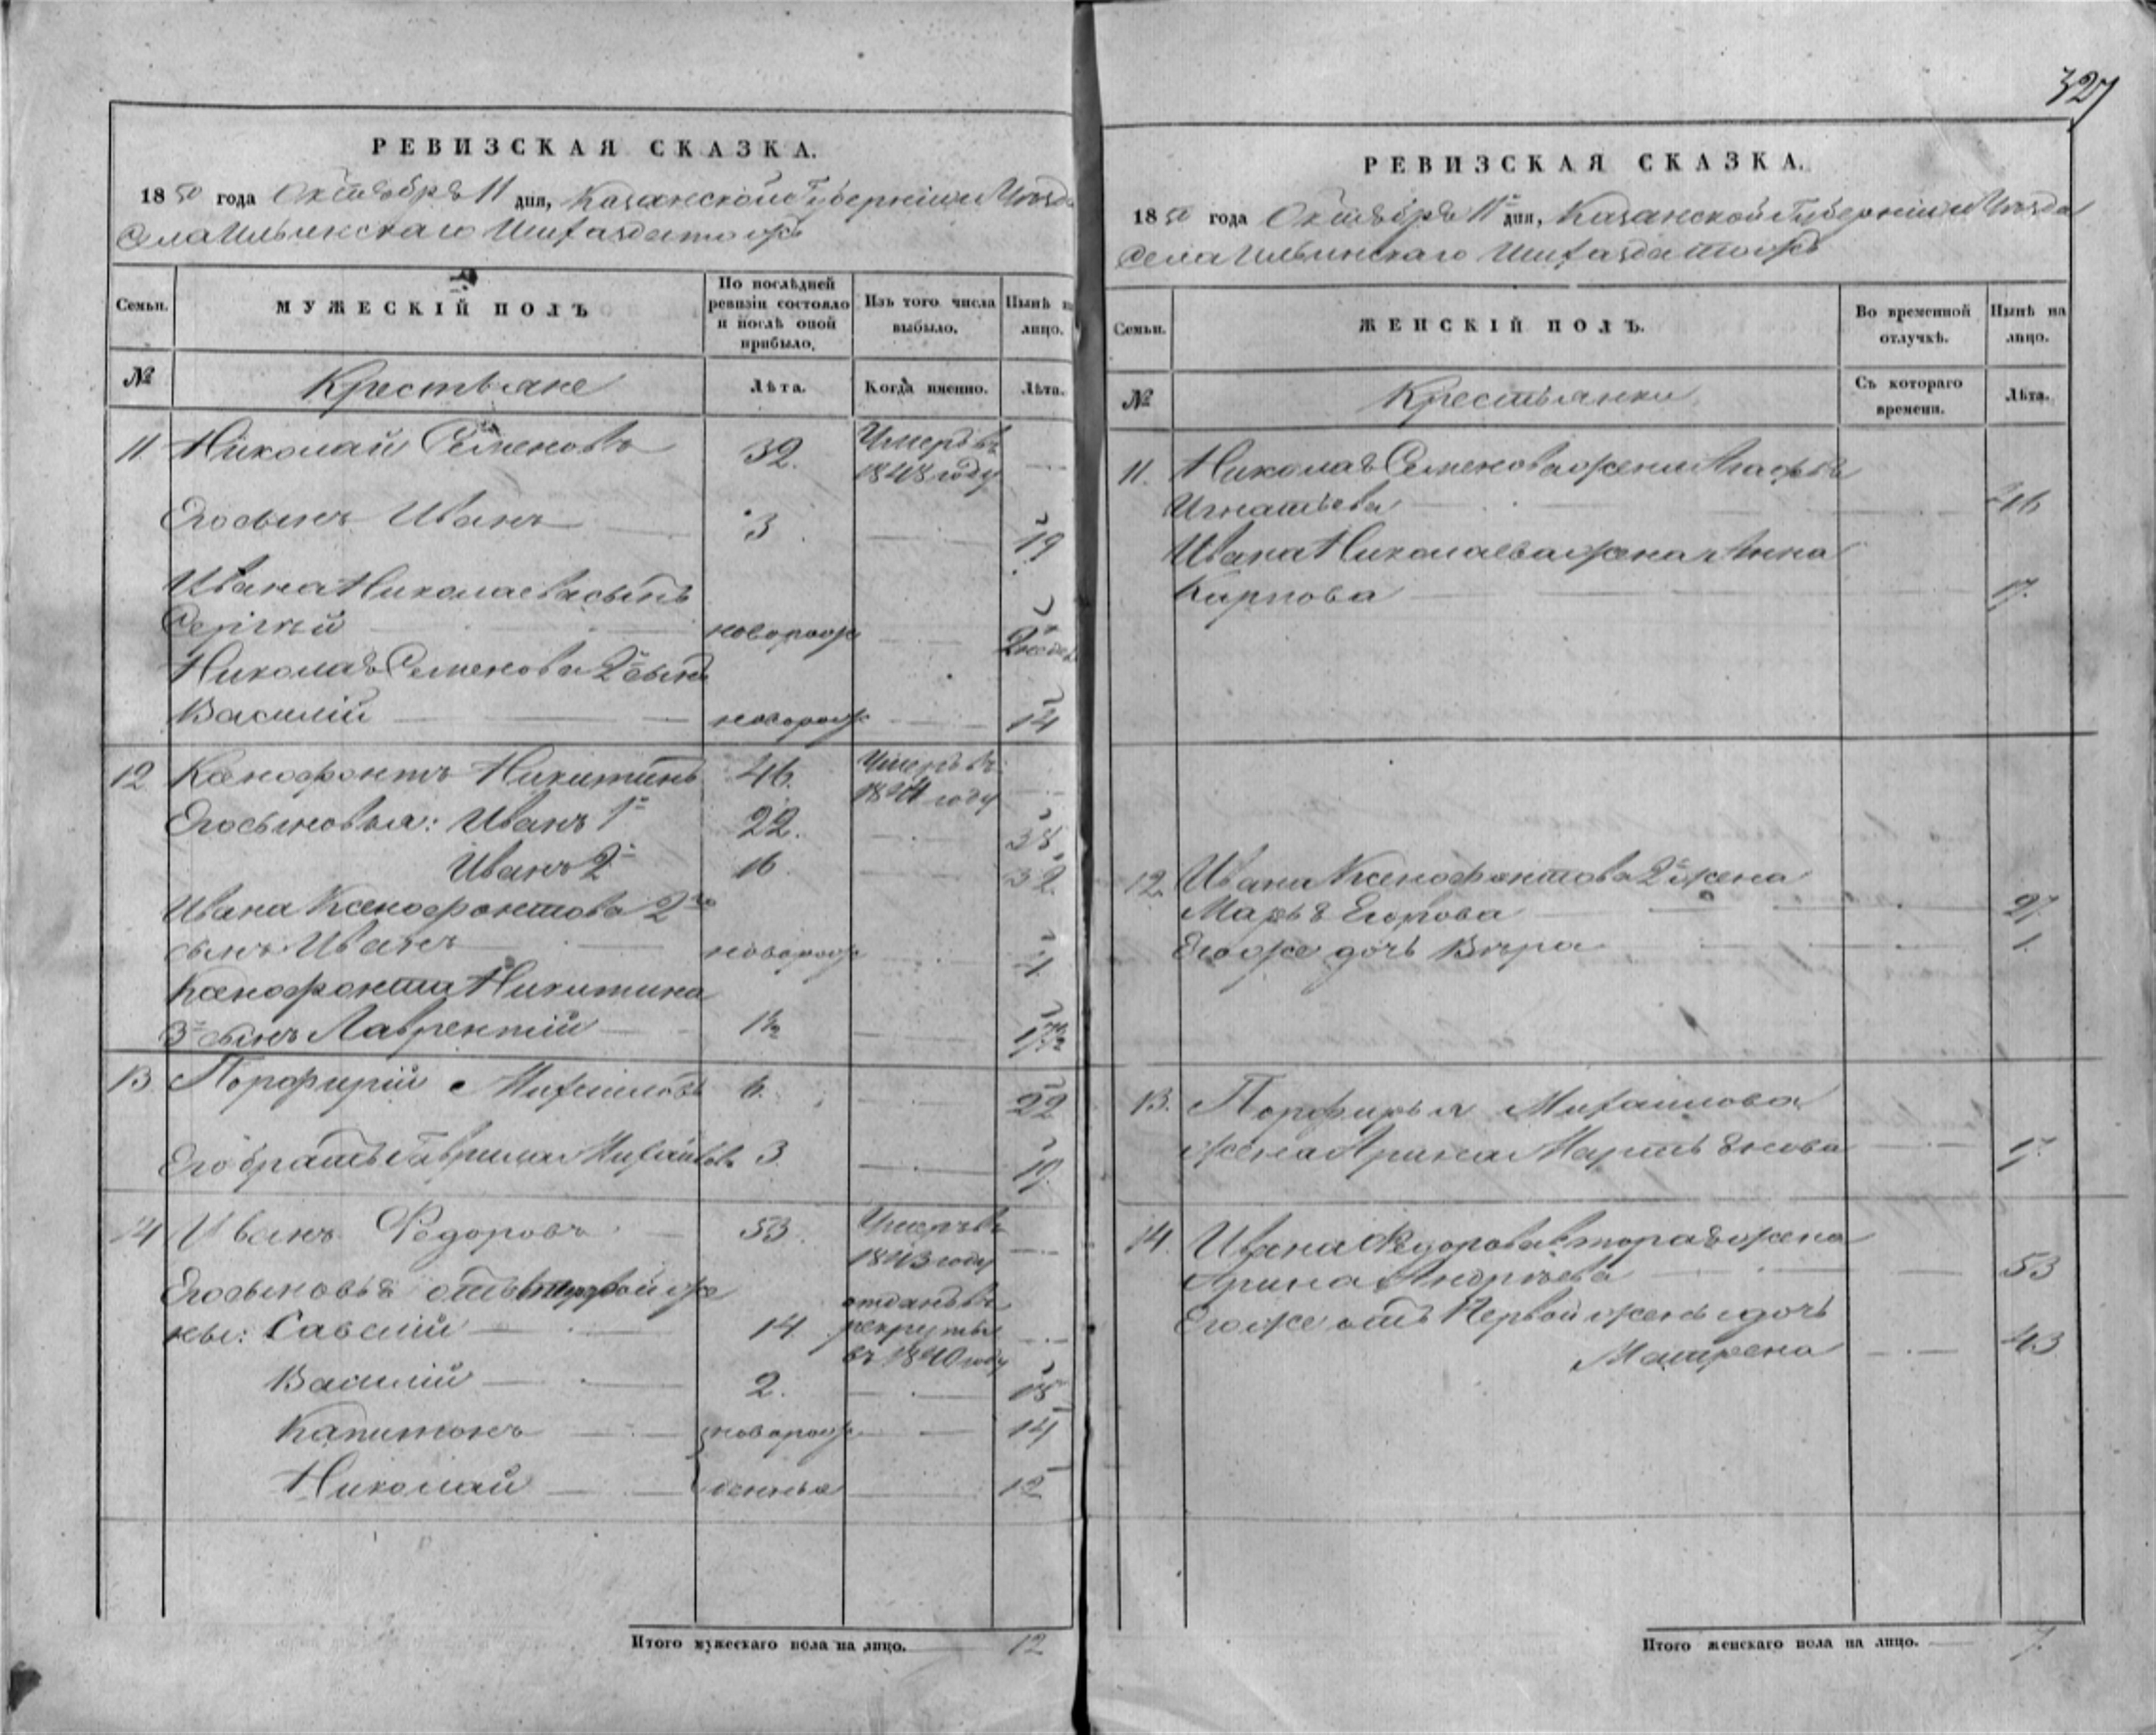 327
РЕВИЗСКАЯ СКАЗКА.
1850 года Октября 11 дня, Казанской Губерніи и Уѣзда
Села Ильинскаго тожъ
Семьи.
МУЖЕСКІЙ ПОЛЪ
По послѣдней ревизіи состояло и послѣ оной прибыло.
Изъ того числа выбыло.
Нынѣ на лицо.
№
Крестьяне
Лѣта.
Когда именно.
Лѣта.
11. Николай Семеновъ 32. Умеръ въ
1848 году
Его сынъ Иванъ 3 19
Ивана Николаева сынъ
Сергѣй новорож 2 недѣл
Николая Семенова 2й сынъ
Василій новорож 14
12 Ксенофонтъ Никитинъ 46. Умеръ въ
1844 году
Его сыновья: Иванъ 1й 22. 38.
Иванъ 2й 16 32.
Ивана Ксенофонтова 2го
сынъ Иванъ новорож 4
Ксенофонта Никитина
3й сынъ Лаврентій 1½ 17½
13 Порфирій Михайловъ 6. 22
Его братъ Гаврила Михайловъ 3. 19.
14 Иванъ Федоровъ 53. Умеръ въ
1843 году
Его сыновья отъ первой же
ны: Савелій 14 отданъ въ
рекруты
въ 1840 году
Василій 2. 18
Капитонъ новорож 14
Николай денные 12
Итого мужескаго пола на лицо. 12
РЕВИЗСКАЯ СКАЗКА.
1850 года Октября 11го дня, Казанской Губерніи и Уѣзда
Села Ильинскаго тожъ
Семьи.
ЖЕНСКІЙ ПОЛЪ.
Во временной отлучкѣ.
Нынѣ на лицо.
№
Крестьянки
Съ котораго времени.
Лѣта.
11. Николая Семенова жена Агафья
Игнатьева 46
Ивана Николаева жена Анна
Карпова 17.
12. Ивана Ксенофонтова 2й жена
Марья Егорова 27.
Его же дочь Вѣра 1.
13. Порфирья Михаилова
жена Арина Мартьянова 17.
14. Ивана Федорова вторая жена
Арина Андрѣева 53
Его же отъ Первой жены дочь
Матрена 43
Итого женскаго пола на лицо. 7.